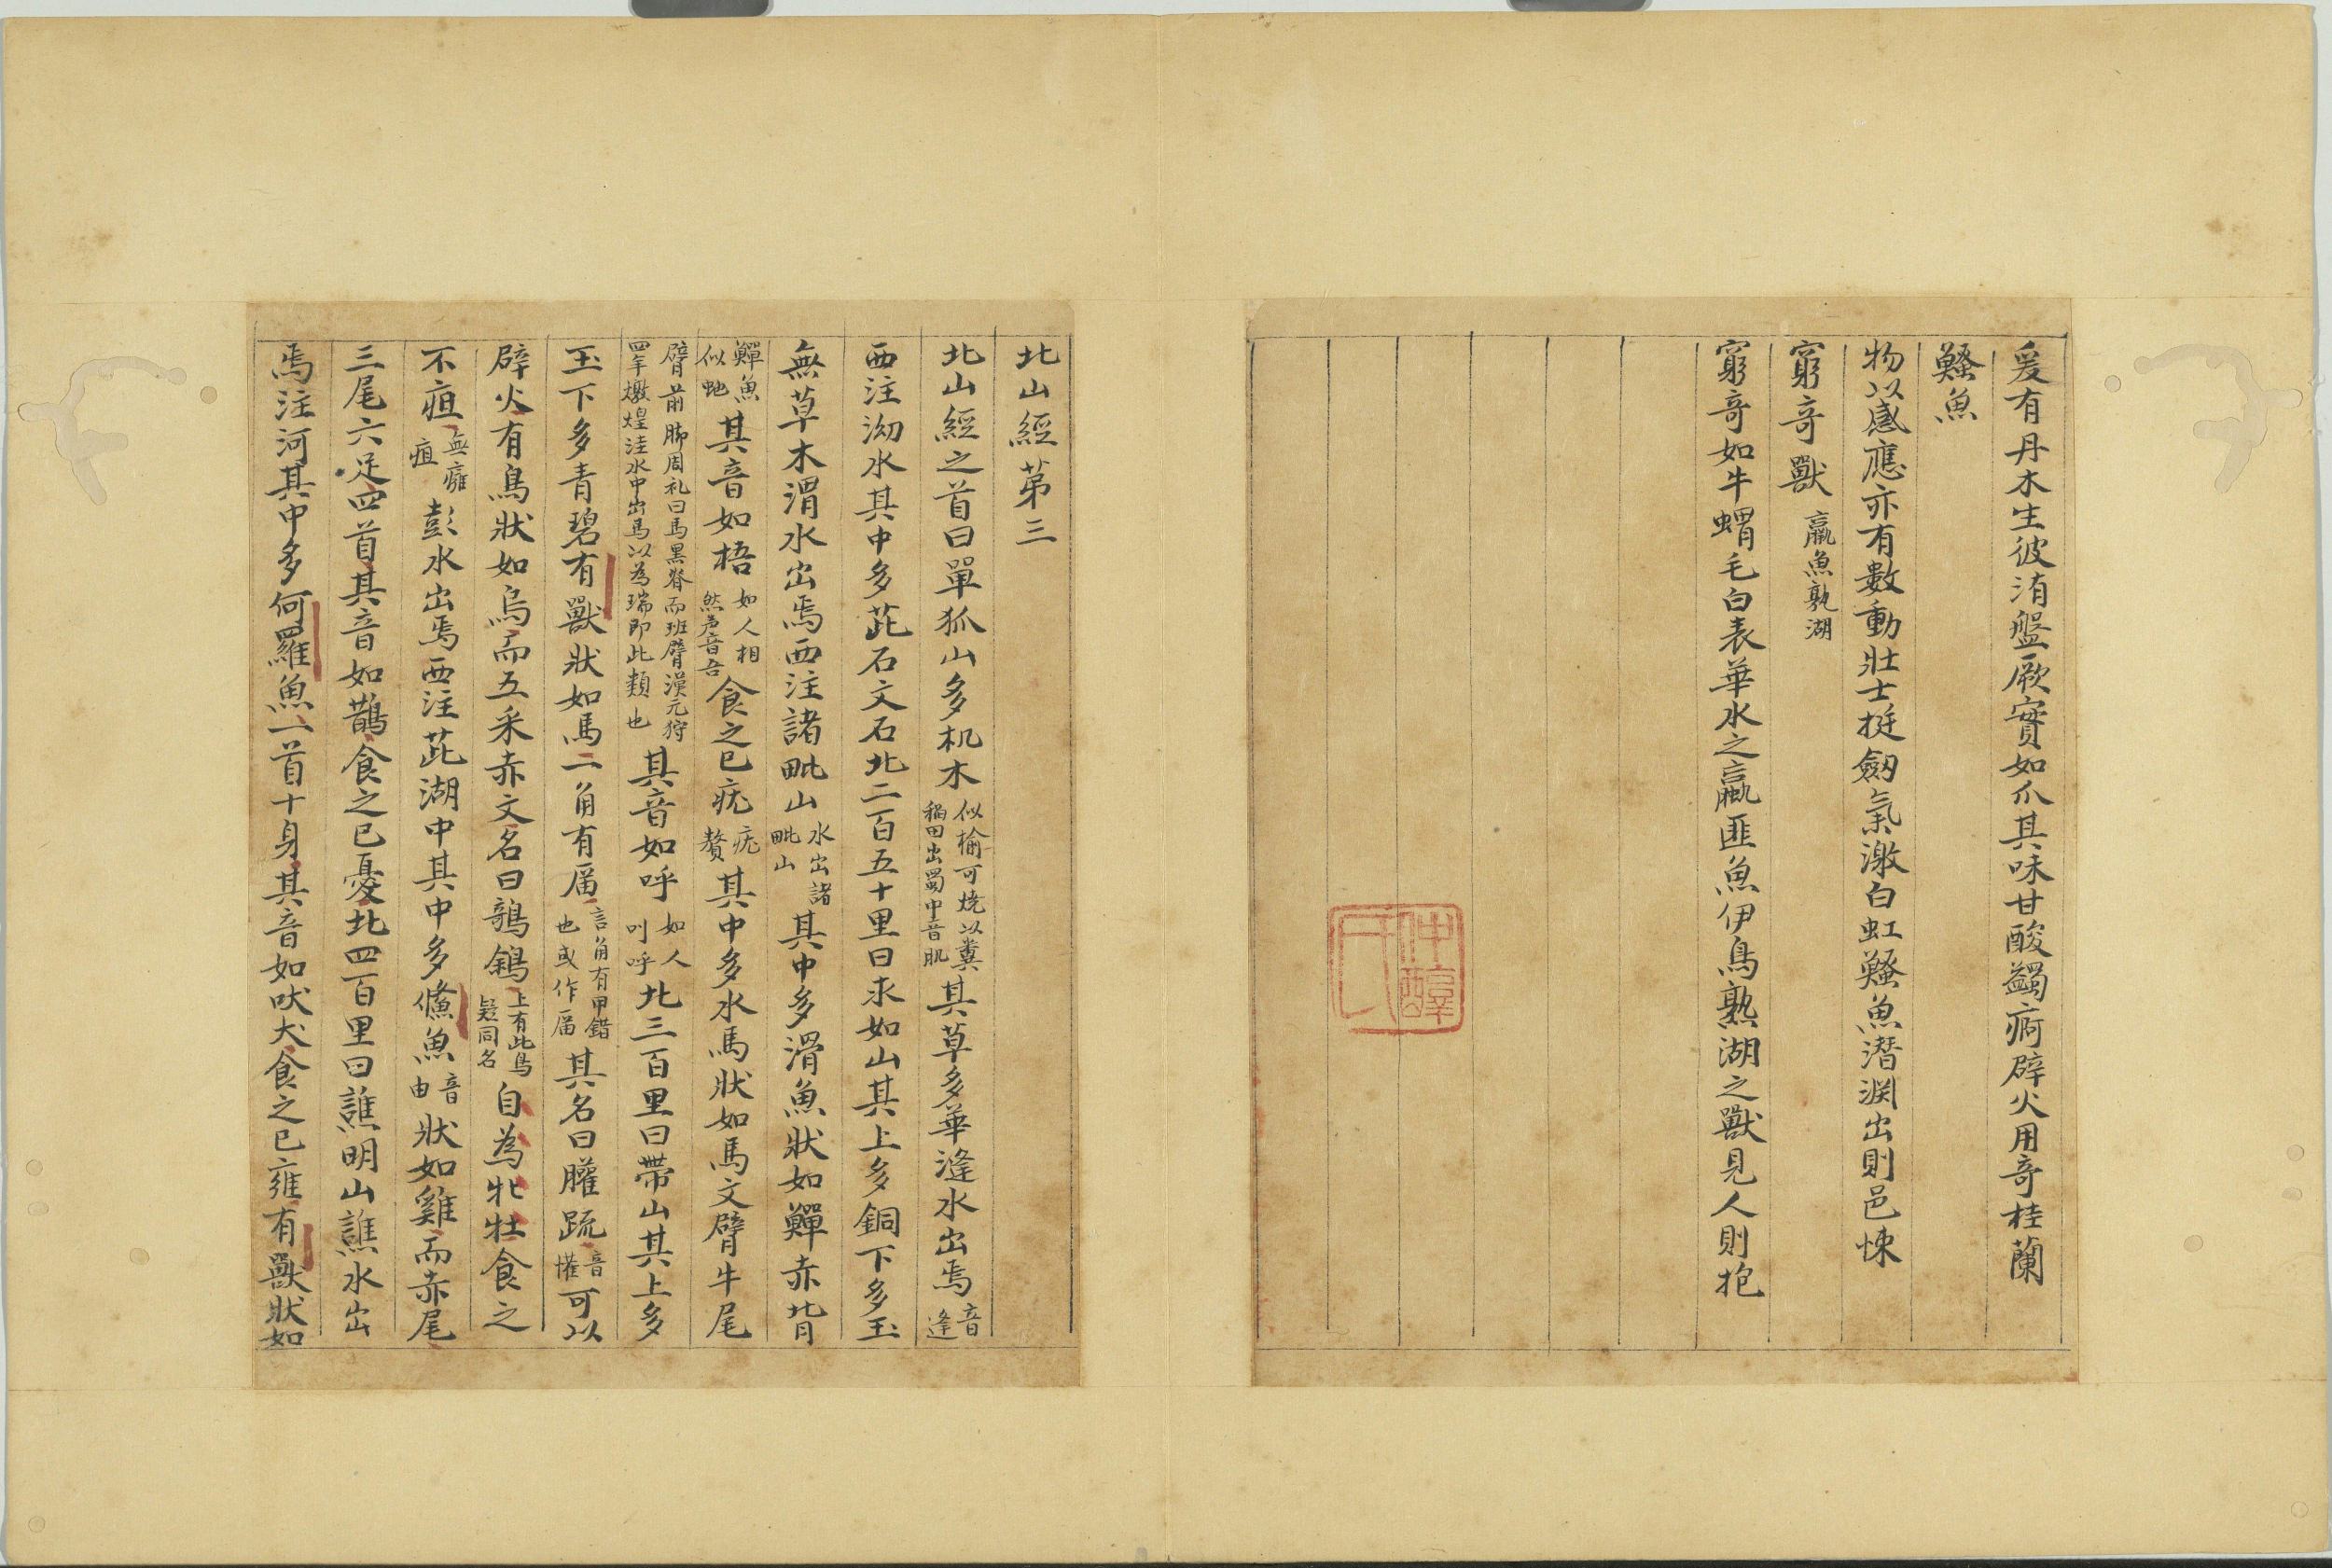 爰有丹木生彼洧盤厥實如爪其味甘酸蠲痾辟火用奇桂蘭
鰠魚
物以感應亦有數動壯士挺劔氣激白虹鰠魚潜渊出則邑悚
窮奇獸 蠃魚孰湖
窮奇如牛蝟毛白表華水之蠃匪魚伊鳥熟湖之獸見人則抱
仲醇
北山經第三
北山經之首曰單狐山多机木似榆可燒以糞稻田出蜀中音肌其草多華漨水出焉音逢
西注泑水其中多茈石文石北二百五十里曰求如山其上多銅下多玉
無草木滑水出焉西注諸毗山水出諸毗山其中多滑魚狀如鱓赤背
鱓魚似虵其音如梧如人相然声音吾食之已疣疣贅其中多水馬狀如馬文臂牛尾
臂前脚周礼曰馬黑脊而班臂漢元狩四年燉煌洼水中出馬以為瑞即此類也其音如呼如人叫呼北三百里曰帶山其上多
玉下多青碧有獸狀如馬一角有厝言角有甲錯也或作厝其名曰䑏疏音懽可以
辟火有鳥狀如烏而五采赤文名曰鵸鵌上有此鳥疑同名自為牝牡食之
不疽無癰疽彭水出焉西注茈湖中其中多儵魚音由狀如雞而赤尾
三尾六足四首其音如鵲食之已憂北四百里曰譙明山譙水出
焉注河其中多何羅魚一首十身其音如吠犬食之已雍有獸狀如